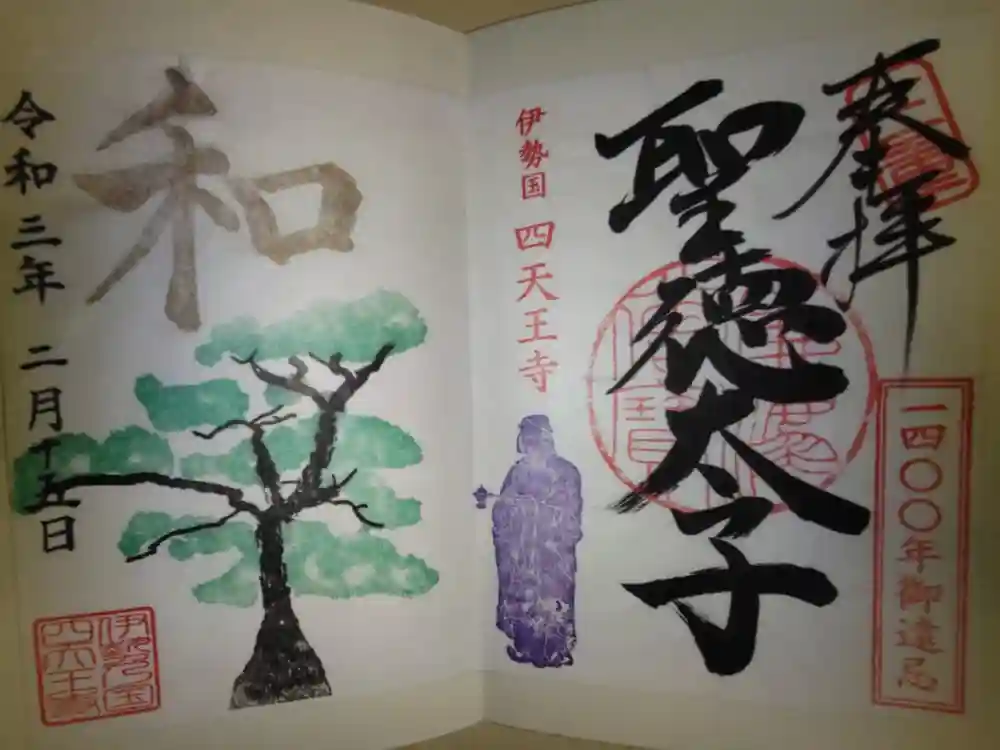 奉拝
聖徳太子
一四〇〇年御遠忌
伊勢国 四天王寺
和
令和三年 二月十五日
伊勢国
四天王寺